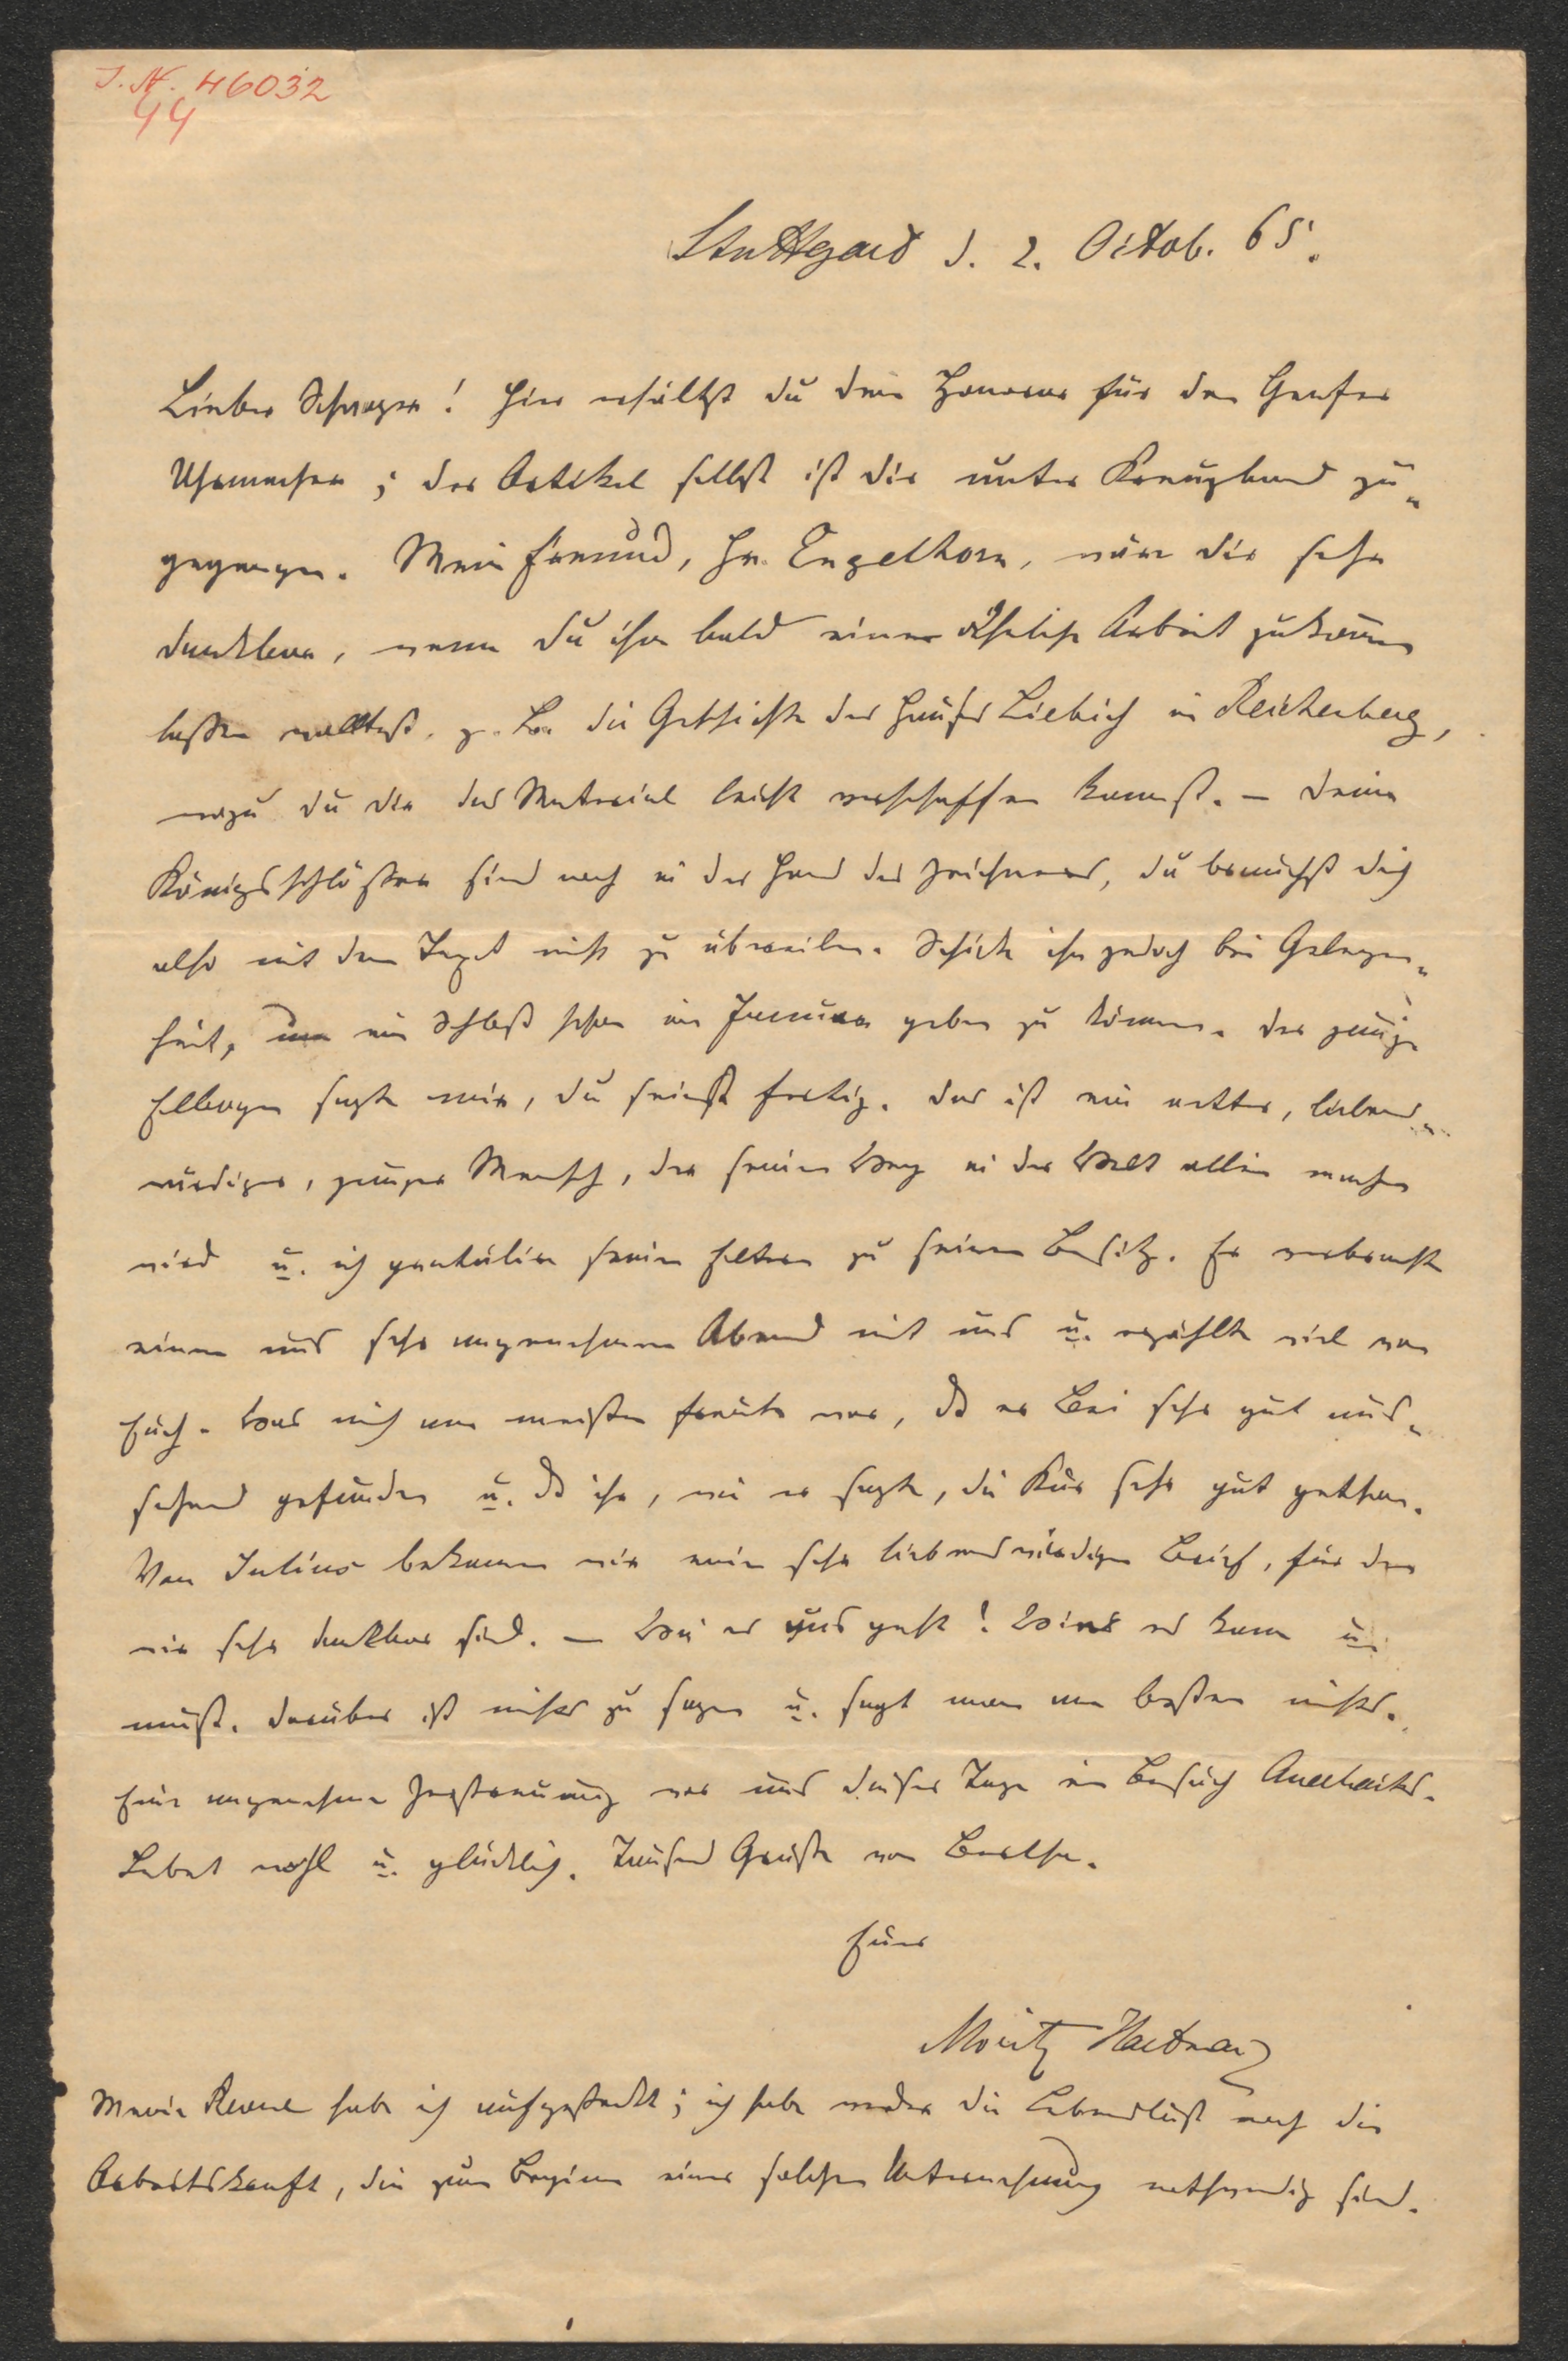 J. N. 46032
44
Stuttgard d. 2. Octob. 65.
Lieber Schwager! Hier erhältst du dein Honorar für den Genfer
Uhrmacher; der Artikel selbst ist dir unter Kreuzband zu-
gegangen. Mein Freund, Hr. Engelhorn, wäre dir sehr
dankbar, wenn du ihm bald eine ähnliche Arbeit zukommen
lassen wolltest, z. B. die Geschichte des Hauses Liebich in Reichenberg,
wozu du dir das Material leicht verschaffen kannst. – Deine
Königsschlösser sind noch in der Hand des Zeichners, du brauchst dich
also mit dem Text nicht zu übereilen. Schicke ihn jedoch bei Gelegen-
heit, um ein Schloß schon im Januar geben zu können. Der junge
Ellbogen sagte mir, du seiest fertig. Das ist ein netter, liebens-
würdiger, junger Mensch, der seinen Weg in der Welt allein machen
wird u. ich gratulire seinen Eltern zu seinem Besitz. Er verbrachte
einen uns sehr angenehmen Abend mit uns u. erzählte viel von
Euch. Was mich am meisten freute war, daß er sehr gut aus-
sehend gefunden u. daß ihr, wie er sagte, die Kur sehr gut gethan.
Von Julius bekamen wir einen sehr liebenswürdigen Brief, für den
wir sehr dankbar sind. – Wie es uns geht! Wie es kann u.
muß. Darüber ist nichts zu sagen u. sagt man am besten nichts.
Eine angenehme Zerstreuung war uns dieser Tage ein Besuch Auerbachs.
Lebet wohl u. glücklich. Tausend Grüße von Bertha.
Euer
Moritz Hartmann
Meine Revue habe ich aufgesteckt; ich habe weder die Lebenslust noch die
Arbeitskraft, die zum Beginn einer solchen Unternehmung nothwendig sind.